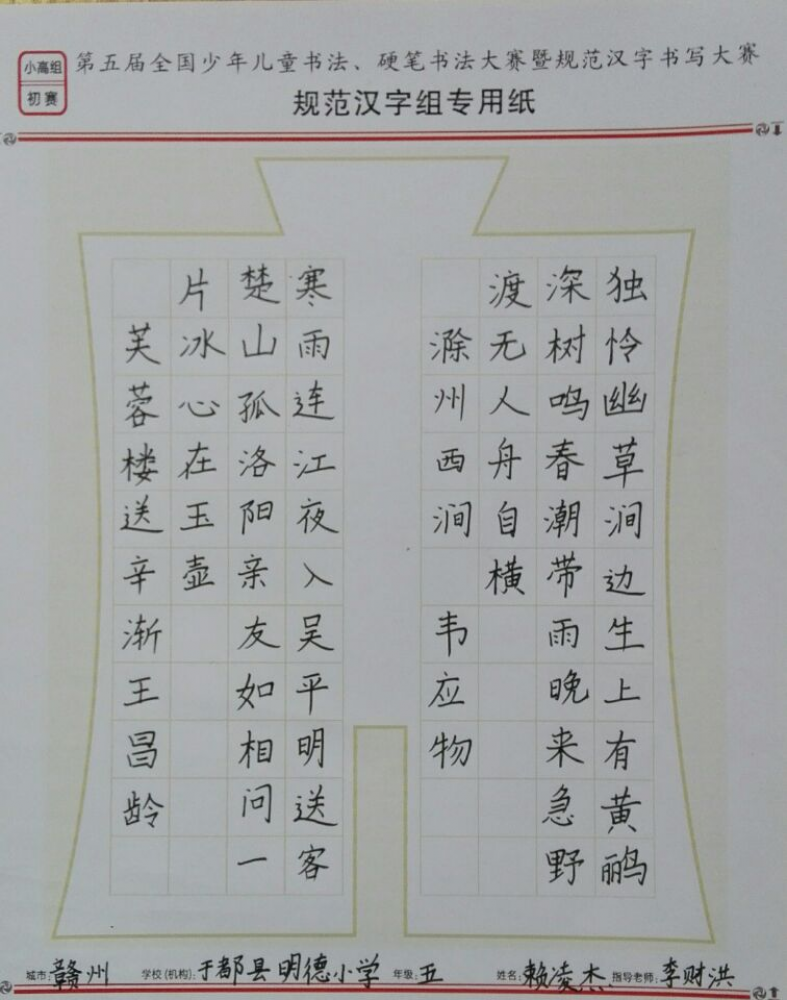 小高组
初赛
第五届全国少年儿童书法、硬笔书法大赛暨规范汉字书写大赛
规范汉字组专用纸
独怜幽草涧边生上有黄鹂
深树鸣春潮带雨晚来急野
渡无人舟自横
滁州西涧 韦应物
寒雨连江夜入吴平明送客
楚山孤洛阳亲友如相问一
片冰心在玉壶
芙蓉楼送辛渐王昌龄
城市:赣州 学校(机构):于都县明德小学 年级:五 姓名:赖凌杰 指导老师:李财洪